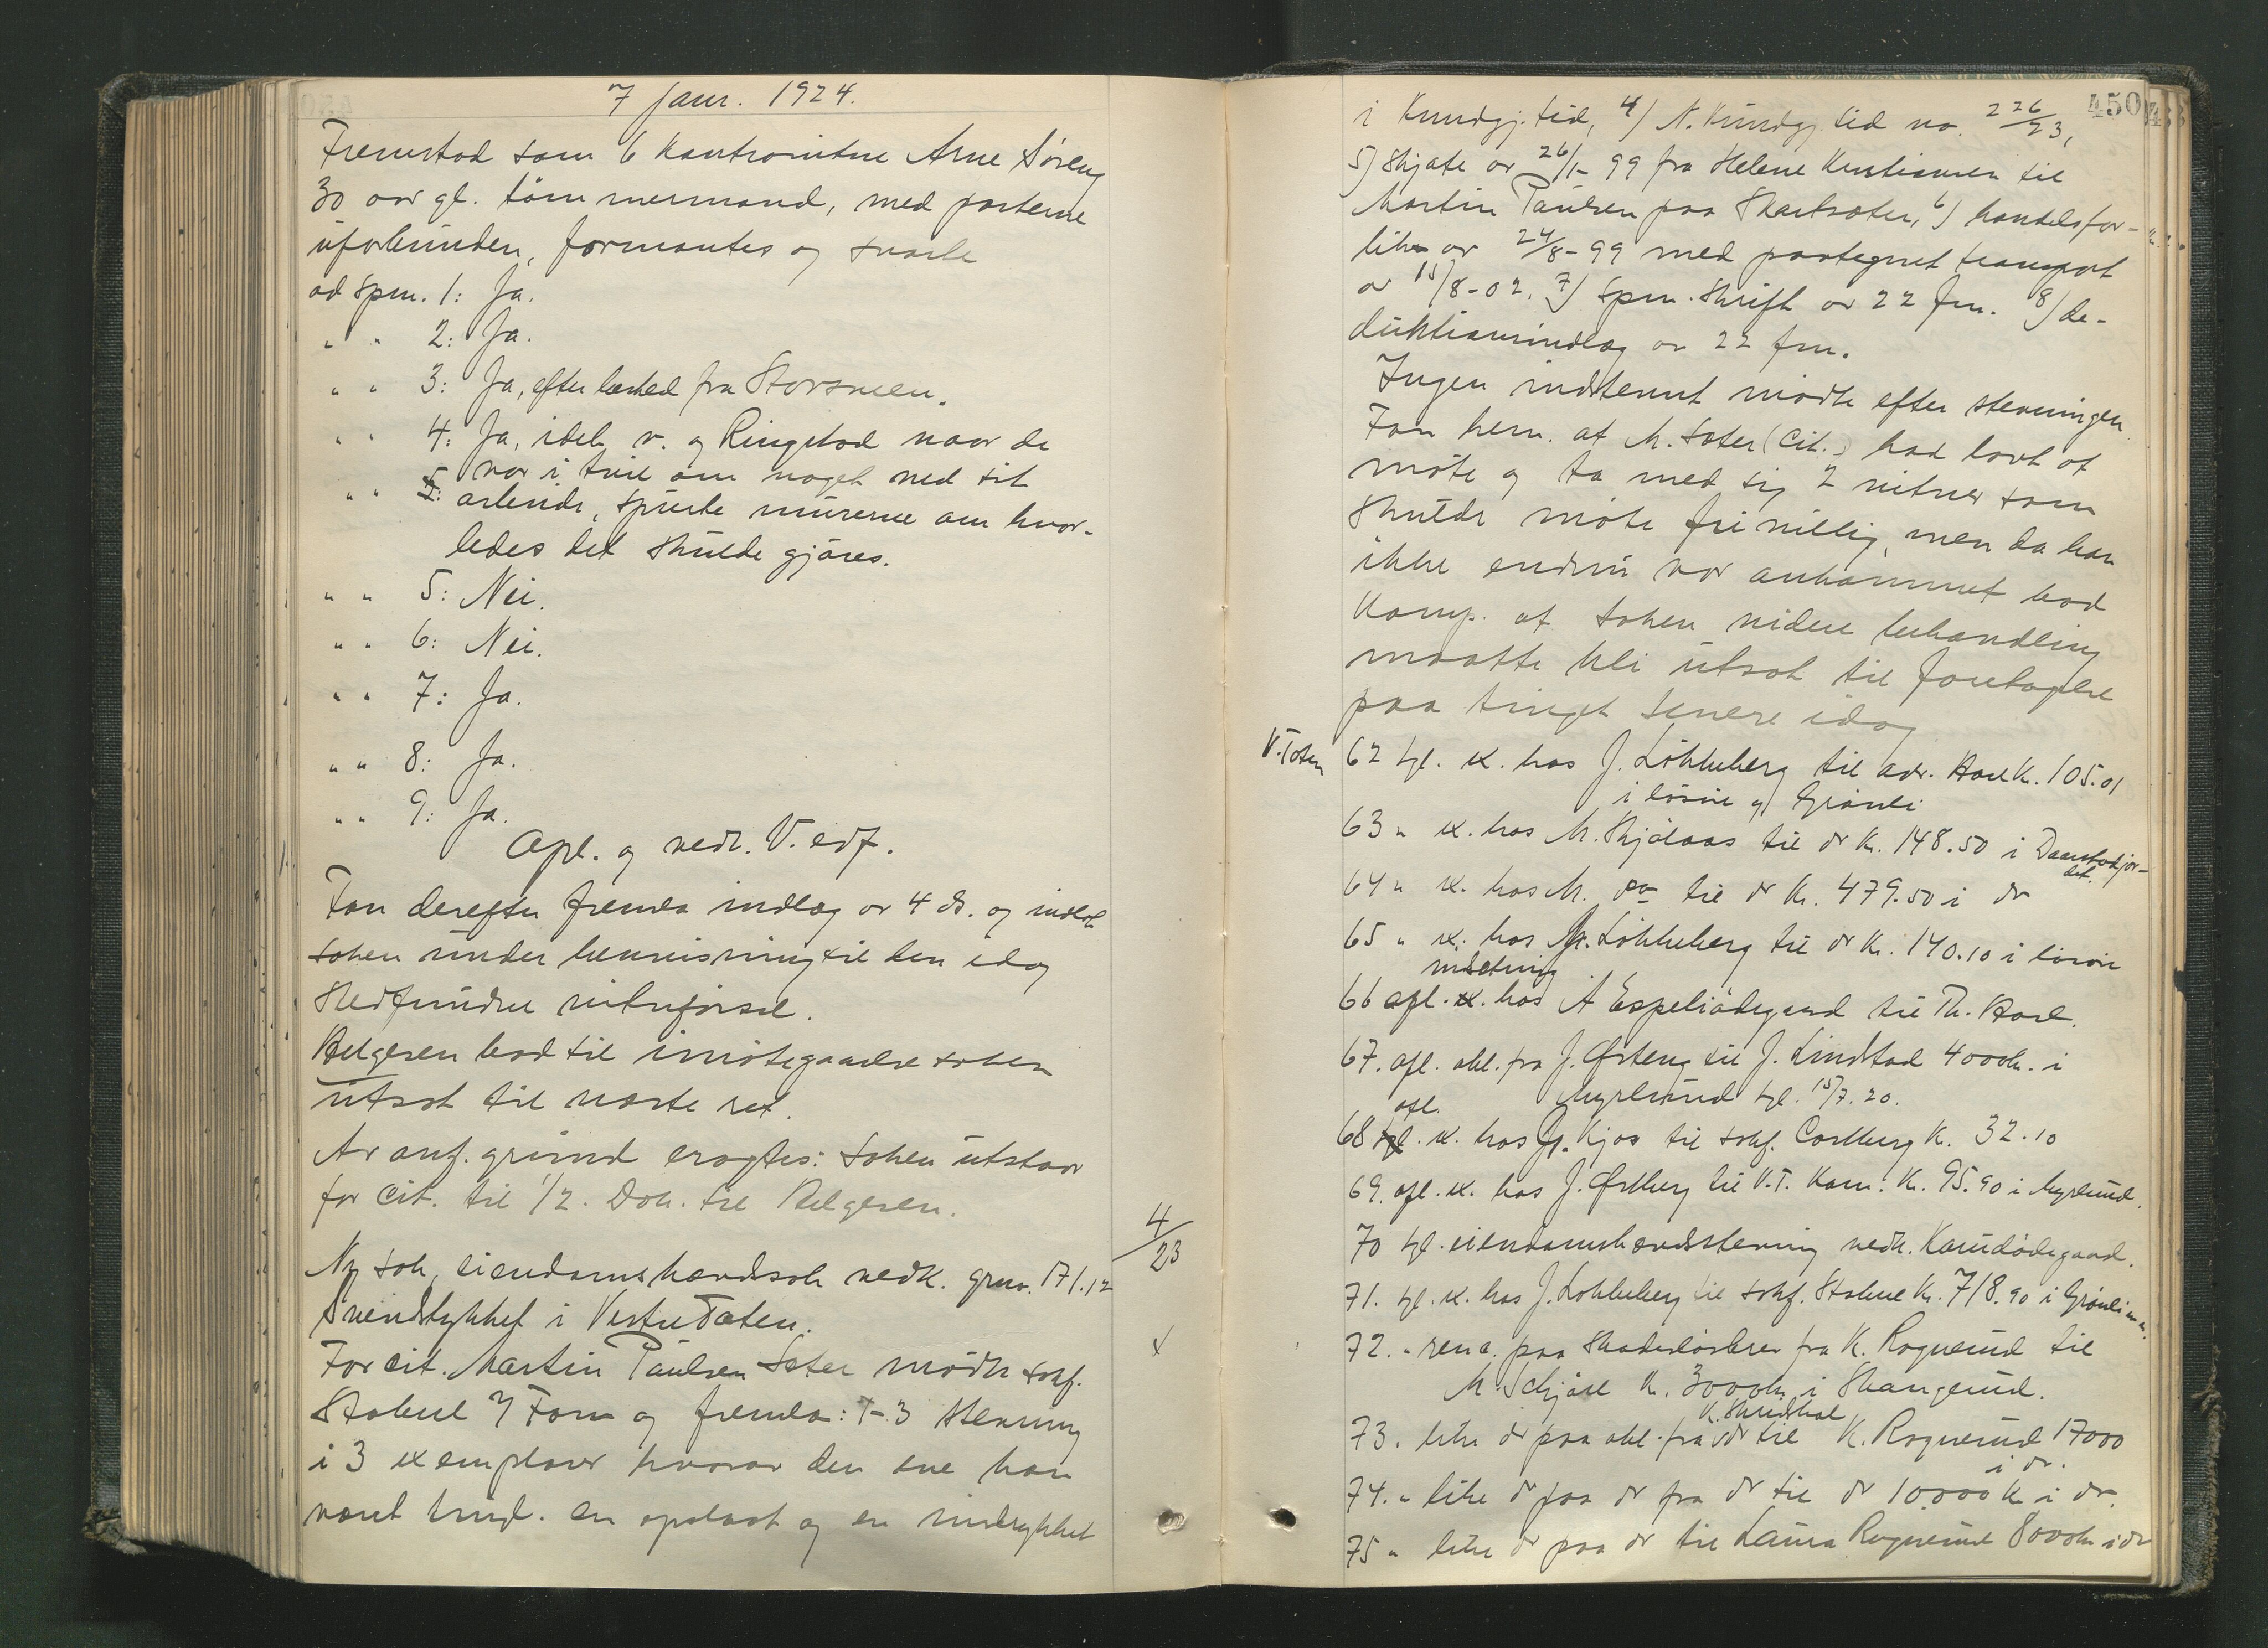 7 Janr. 1924.
Fremstod som 6 kontravitne Arne Söreng
30 aar gl. tömmermand, med parterne
uforbunden, formantes og svarte
ad spm. 1: Ja.
" " 2: Ja.
" " 3: Ja, efter besked fra Storsveen.
" " 4: Ja, idet v. og Ringstad naar de
var i tvil om noget ved sit
" " 5: arbeide, spurte murerne om hvor-
ledes det skulde gjöres.
" " 5: Nei.
" " 6: Nei.
" " 7: Ja.
" " 8: Ja.
" " 9: Ja.
Opl. og vedt. V. edf.
Fon derefter fremla indlæg av 4 ds. og indlot
saken under henvisning til den idag
stedfundne vitneförsel.
Helgesen bad til imötegaaelse saken
utsat til næste ret.
Av anf. grund eragtes: Saken utstaar
for cit. til 1/2. Dok. til Helgesen.
4/23
Ny sak, eiendomshævdsak vedk. grnr. 171.12
Svendstykket i Vestre Toten.
For cit. Martin Paulsen Sæter mödte sakf.
Stabell v/ Fon og fremla: 1-3 stevning
i 3 exemplarer hvorav den ene har
været tingl. en opslaat og en indrykket
450
i Kundgj. tid, 4) N. Kundgj. tid no. 226/23,
5) skjöte av 26/1-99 fra Helene Kristiansen til
Martin Paulsen paa Skartsæter, 6) handelsfor-
likn av 24/8-99 med paategnet transport
av 15/8-02, 7) Spm. skrift av 22 f.m. 8) de-
duktionsindlæg av 22 f.m.
Ingen indstevnt mödte efter stevningen.
Fon bem. at M. Sæter (Cit.) had lovt at
möte og ta med sig 2 vitner som
skulde möte frivillig, men da han
ikke endnu var ankommet bad
komp. at saken videre behandling
maatte bli utsat til foretagelse
paa tinget senere idag
V. Toten 62 tgl. ex. hos J. Lökkeberg til adv. Hoel k. 105.01
i lösöre og Grönli
63 " ex. hos M. Skjölaas til dr k. 148.50 i Daarstadjor-
det.
64 " ex. hos M. do til dr kr. 479.50 i dr
65 " ex. hos M. Lökkeberg til dr kr. 140.10 i lösöre
66 afl. ex. hos A Espeliödegaard til Th. Hoel.
67. afl. obl. fra J. Østeng til J. Lindstad 4000k. i
Myrlund tgl. 15/7.20.
afl.
68 ex. hos Kjos til sakf. Carlberg k. 32.10
69. afl. ex. hos J. Østberg til V.T. Kom. k. 95.90 i Myrlund.
70 tgl. eiendomshævdstevning vedk. ödegaard.
71. tgl. ex. hos J. Lökkeberg til sakf. Stabell kr. 718.90 i Grönli m.m.
72. " paa skadeslösbrev fra K. Rognerud til
M. Schjöll k. 3000k i Skangerud.
73. " like dr paa obl. fra K. Skundal til K. Rognerud 17000
i dr.
74. " like dr paa dr fra dr til dr 10.000k i dr.
75 " like dr paa dr til Laura Rognerud 8000k i dr